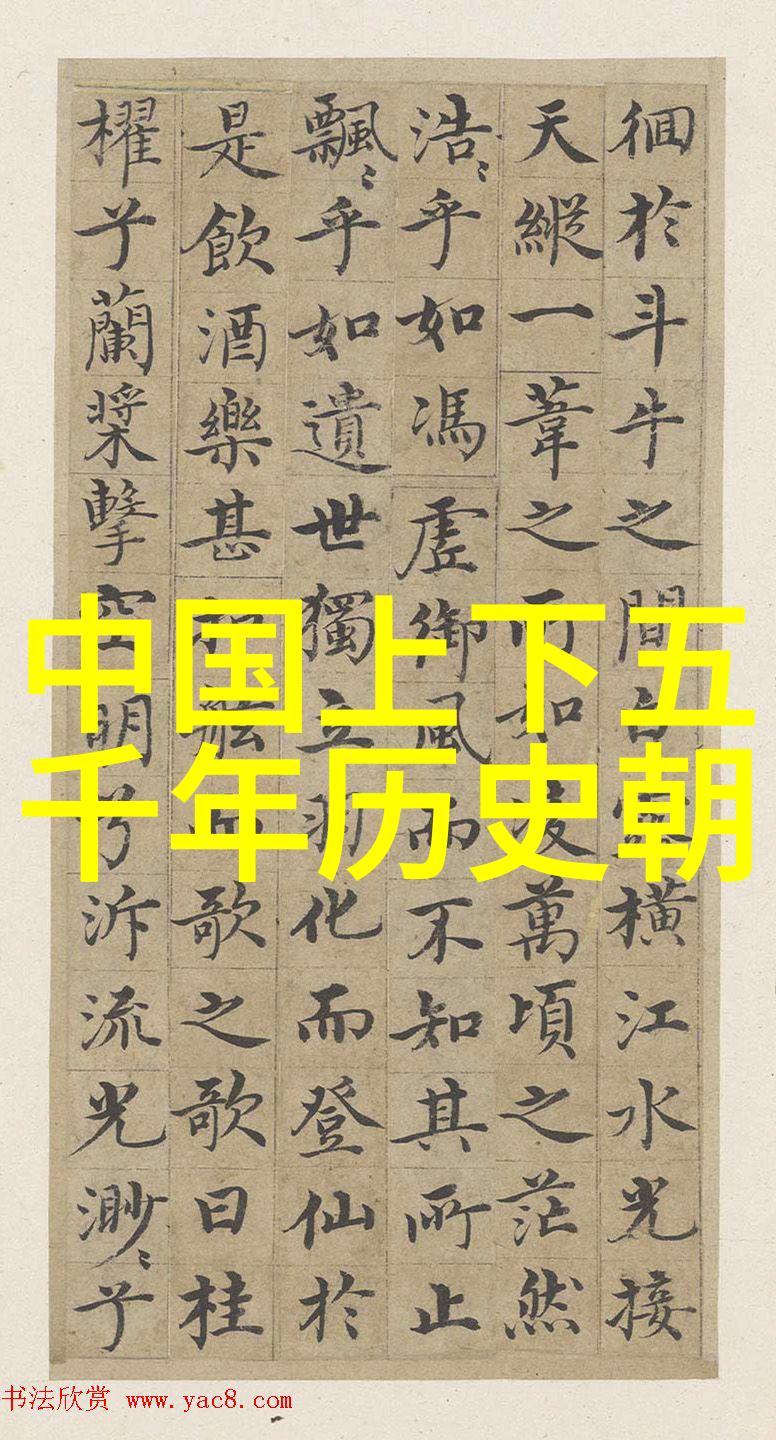 徊於斗牛之間白露橫江水光接
天縱一葦之所如凌萬頃之茫然
浩〻乎如馮虛御風而不知其所止
飄〻乎如遺世獨立羽化而登仙於
是飲酒樂甚扣舷而歌之歌曰桂
櫂兮蘭槳擊空明兮泝流光渺〻兮
中国上下五
千年历史朝
书法欣赏 www.yac8.com